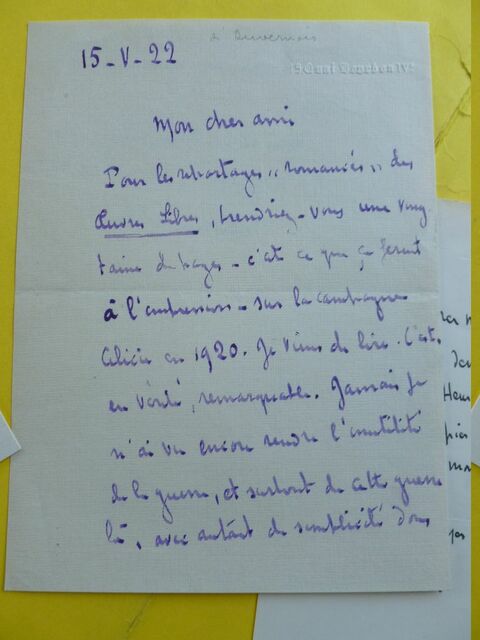 à Duvernois
15-V-22
19 Quai Bourbon IVe
Mon cher ami
Pour les reportages "romancés" des
Œuvres Libres, prendriez-vous une ving
taine de pages - c'est ce que ça ferait
à l'impression - sur la campagne
Cilicie en 1920. Je viens de lire. C'est,
en vérité, remarquable. Jamais je
n'ai vu encore rendre l'inutilité
de la guerre, et surtout de cette guerre
là, avec autant de simplicité dans